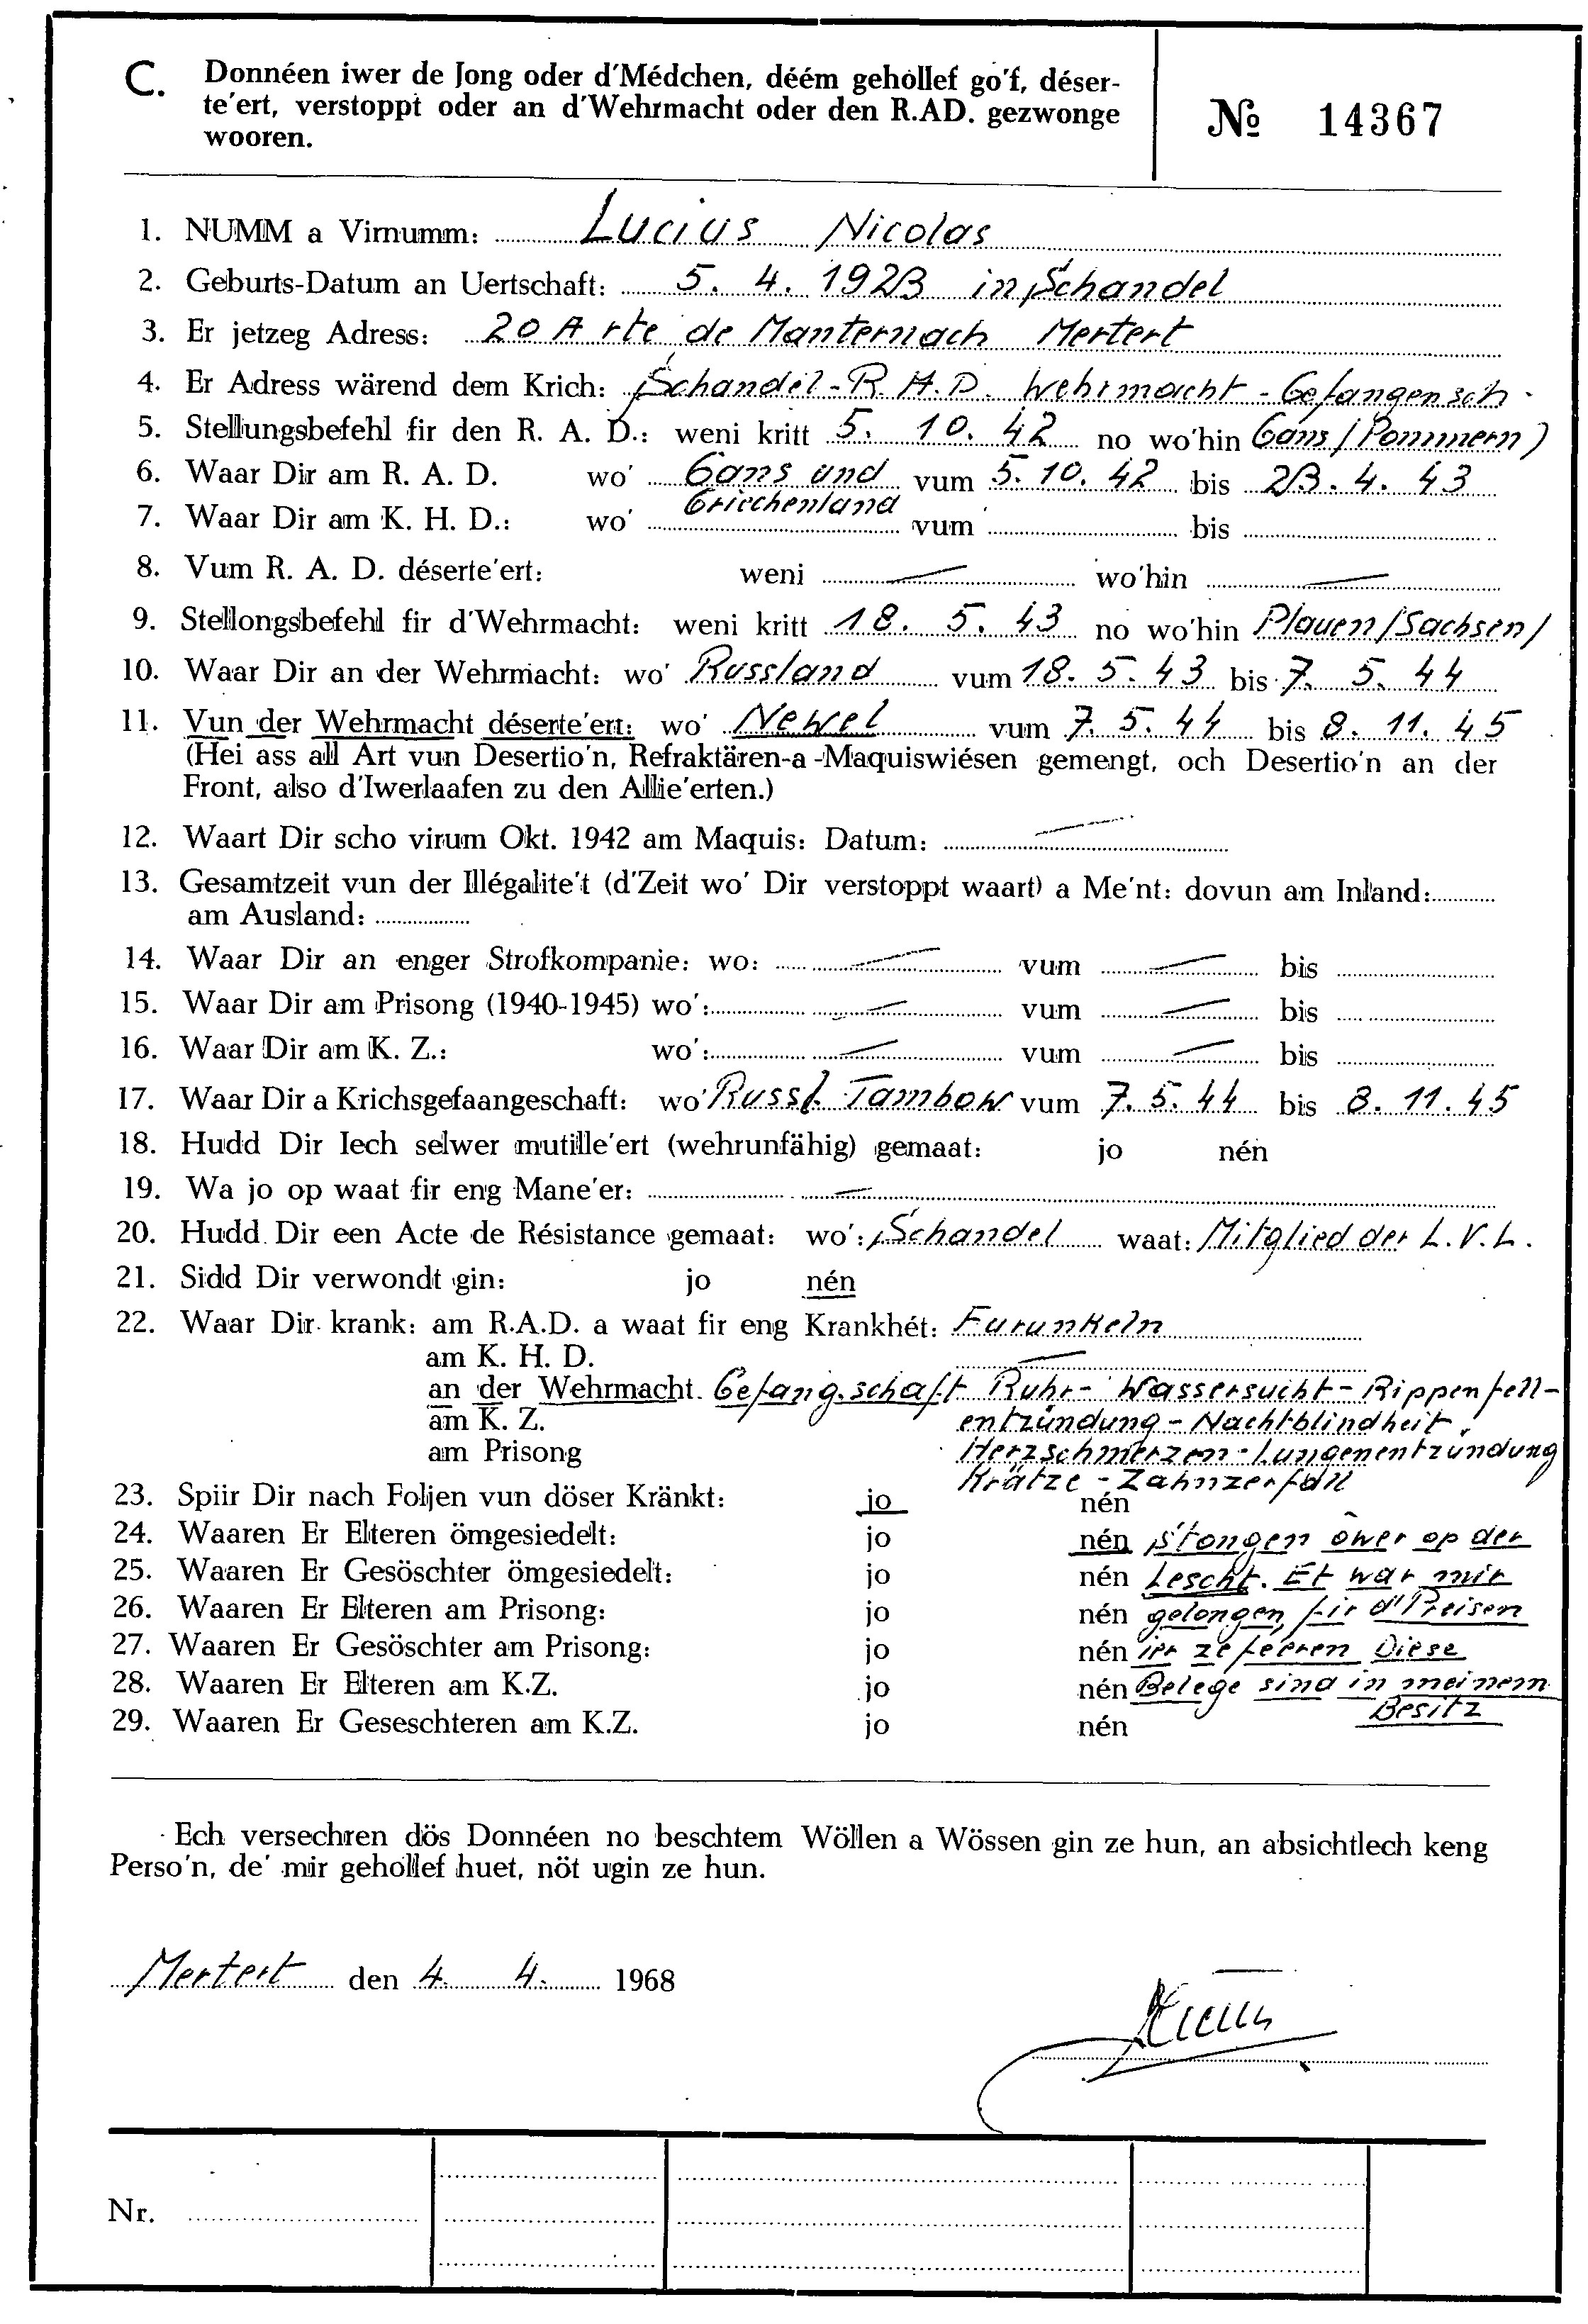 C. Donnéen iwer de Jong oder d'Médchen, déém gehöllef go'f, déser-
te'ert, verstoppt oder an d'Wehrmacht oder den R.AD. gezwonge
wooren.
№ 14367
1. NUMM a Virnumm: Lucius Nicolas
2. Geburts-Datum an Uertschaft: 5. 4. 1923 in Schandel
3. Er jetzeg Adress: 20 A rte de Manternach Mertert
4. Er Adress wärend dem Krich: Schandel - R.A.D. Wehrmacht - Gefangensch.
5. Stellungsbefehl fir den R. A. D.: weni kritt 5. 10. 42 no wo'hin Gans (Pommern)
6. Waar Dir am R. A. D. wo' Gans und vum 5. 10. 42 bis 23. 4. 43
Griechenland
7. Waar Dir am K. H. D.: wo' vum bis
8. Vum R. A. D. déserte'ert: weni — wo'hin —
9. Stellongsbefehl fir d'Wehrmacht: weni kritt 18. 5. 43 no wo'hin Plauen (Sachsen)
10. Waar Dir an der Wehrmacht: wo' Russland vum 18. 5. 43 bis 7. 5. 44
11. Vun der Wehrmacht déserte'ert: wo' Newel vum 7. 5. 44 bis 8. 11. 45
(Hei ass all Art vun Desertio'n, Refraktären-a-Maquiswiésen gemengt, och Desertio'n an der
Front, also d'Iwerlaafen zu den Allie'erten.)
12. Waart Dir scho virum Okt. 1942 am Maquis: Datum: —
13. Gesamtzeit vun der Illégalite't (d'Zeit wo' Dir verstoppt waart) a Me'nt: dovun am Inland:
am Ausland:
14. Waar Dir an enger Strofkompanie: wo: — vum — bis
15. Waar Dir am Prisong (1940-1945) wo': — vum — bis
16. Waar Dir am K. Z.: wo': — vum — bis
17. Waar Dir a Krichsgefaangeschaft: wo' Russl. Tambow vum 7. 5. 44 bis 8. 11. 45
18. Hudd Dir Iech selwer mutille'ert (wehrunfähig) gemaat: jo nén
19. Wa jo op waat fir eng Mane'er: —
20. Hudd Dir een Acte de Résistance gemaat: wo': Schandel waat: Mitglied der L.V.L.
21. Sidd Dir verwondt gin: jo nén
22. Waar Dir krank: am R.A.D. a waat fir eng Krankhét: Furunkeln
am K. H. D. —
an der Wehrmacht. Gefang.schaft Ruhr - Wassersucht - Rippenfell-
am K. Z. entzündung - Nachtblindheit,
am Prisong Herzschmerzen - Lungenentzündung
Krätze - Zahnzerfall
23. Spiir Dir nach Foljen vun döser Kränkt: jo nén
24. Waaren Er Elteren ömgesiedelt: jo nén stongen ower op der
25. Waaren Er Gesöschter ömgesiedelt: jo nén Lescht. Et war mir
26. Waaren Er Elteren am Prisong: jo nén gelongen, fir d'Preisen
27. Waaren Er Gesöschter am Prisong: jo nén ier ze feeren Diese
28. Waaren Er Elteren am K.Z. jo nén Belege sind in meinem
29. Waaren Er Geseschteren am K.Z. jo nén Besitz
Ech versechren dös Donnéen no beschtem Wöllen a Wössen gin ze hun, an absichtlech keng
Perso'n, de' mir gehollef huet, nöt ugin ze hun.
Mertert den 4. 4. 1968
Nr.